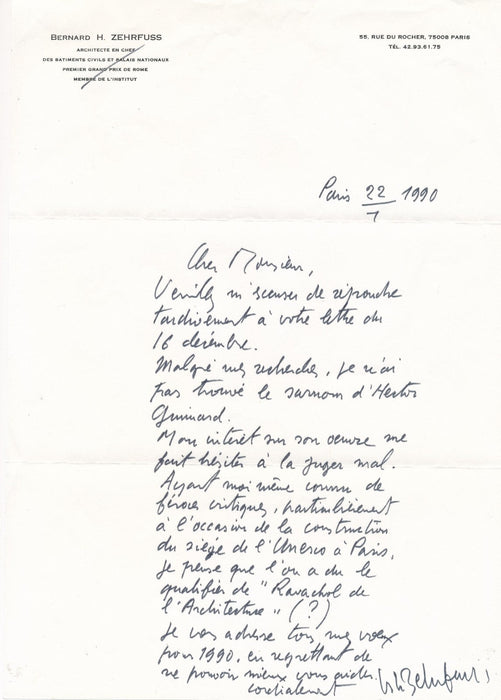 BERNARD H. ZEHRFUSS
ARCHITECTE EN CHEF
DES BATIMENTS CIVILS ET PALAIS NATIONAUX
PREMIER GRAND PRIX DE ROME
MEMBRE DE L'INSTITUT
55, RUE DU ROCHER, 75008 PARIS
TÉL. 42.93.61.75
Paris 22/1 1990
Cher Monsieur,
Veuillez m'excuser de répondre
tardivement à votre lettre du
16 décembre.
Malgré mes recherches, je n'ai
pas trouvé le surnom d'Hector
Guimard.
Mon intérêt sur son oeuvre me
fait hésiter à la juger mal.
Ayant moi même connu de
féroces critiques, particulièrement
à l'occasion de la construction
du siège de l'Unesco à Paris,
je pense que l'on a du le
qualifier de "Ravachol de
l'Architecture" (?)
Je vous adresse tous mes voeux
pour 1990, en regrettant de
ne pouvoir mieux vous aider.
cordialement BhZehrfuss